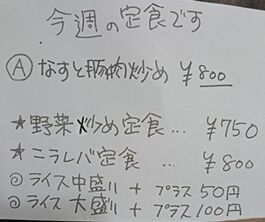 今週の定食です
Ⓐ なすと豚肉炒め ¥800
★野菜炒め定食… ¥750
★ニラレバ定食… ¥800
◎ライス中盛り + プラス50円
◎ライス大盛り + プラス100円